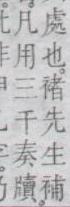 處也褚先生補
凡用三千奏牘